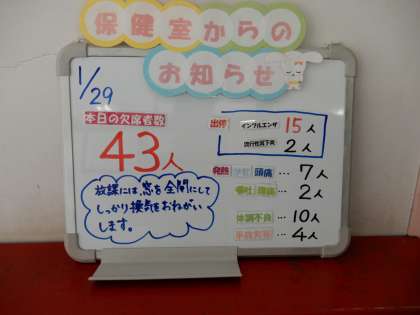 保健室からの
お知らせ
1/29
本日の欠席者数
43人
放課には、窓を全開にして
しっかり換気をおねがい
します。
出停 インフルエンザ 15人
流行性耳下炎 2人
発熱 頭痛 … 7人
嘔吐 腹痛 … 2人
体調不良 … 10人
… 4人